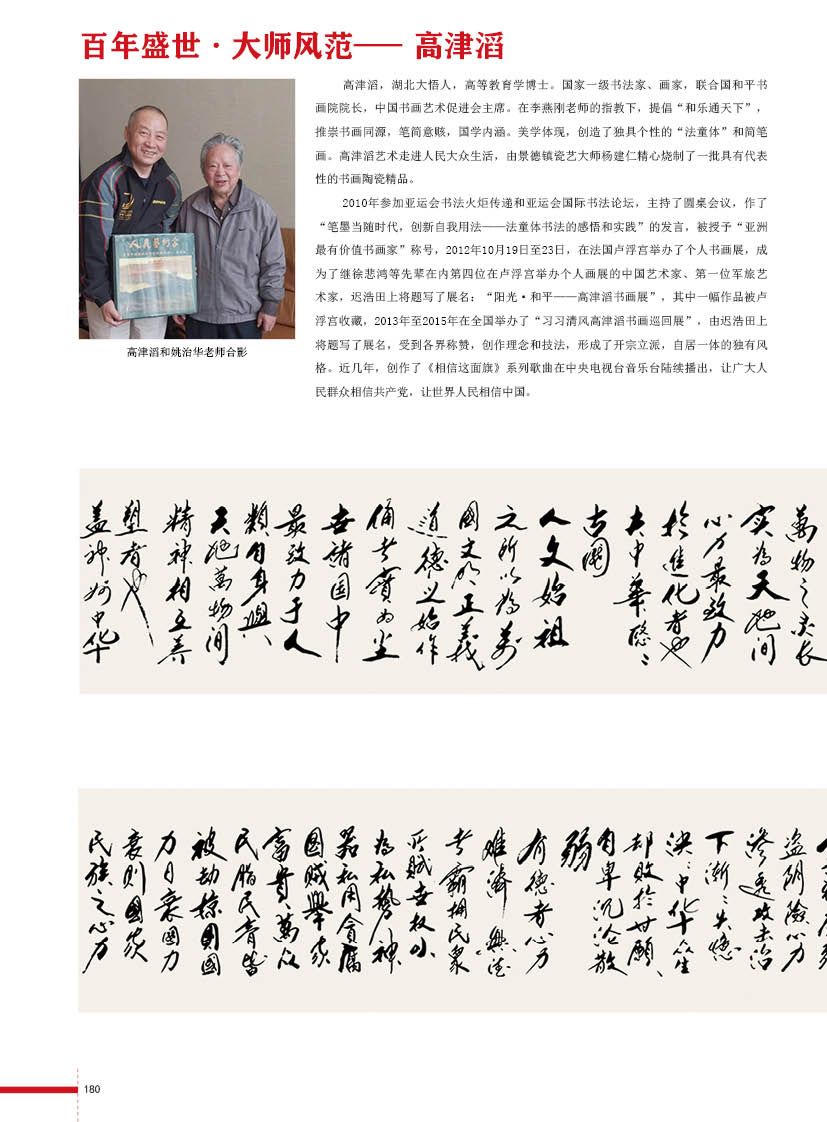 百年盛世·大师风范—— 高津滔
高津滔，湖北大悟人，高等教育学博士。国家一级书法家、画家，联合国和平书
画院院长，中国书画艺术促进会主席。在李燕刚老师的指教下，提倡“和乐通天下”，
推崇书画同源，笔简意赅，国学内涵。美学体现，创造了独具个性的“法童体”和简笔
画。高津滔艺术走进人民大众生活，由景德镇瓷艺大师杨建仁精心烧制了一批具有代表
性的书画陶瓷精品。
2010年参加亚运会书法火炬传递和亚运会国际书法论坛，主持了圆桌会议，作了
“笔墨当随时代，创新自我用法——法童体书法的感悟和实践”的发言，被授予“亚洲
最有价值书画家”称号，2012年10月19日至23日，在法国卢浮宫举办了个人书画展，成
为了继徐悲鸿等先辈在内第四位在卢浮宫举办个人画展的中国艺术家、第一位军旅艺
术家，迟浩田上将题写了展名：“阳光·和平——高津滔书画展”，其中一幅作品被卢
浮宫收藏，2013年至2015年在全国举办了“习习清风高津滔书画巡回展”，由迟浩田上
将题写了展名，受到各界称赞，创作理念和技法，形成了开宗立派，自居一体的独有风
格。近几年，创作了《相信这面旗》系列歌曲在中央电视台音乐台陆续播出，让广大人
民群众相信共产党，让世界人民相信中国。
人民藝術家
高津滔和姚治华老师合影
萬物之灵长
实為天地间
心力最致力
於進化者也
夫中華隐隐
古國
人文始祖
之所以為万
國文明正義
道德之始作
俑者實为尘
世诸国中
最致力于人
類自身與
天地萬物间
精神相互养
塑者也
盖神州中华
盗阴险心力
渗透攻击治
下漸漸失德
泱泱中华众生
却败於甘願
自卑沉沦散
弱
有德者心力
难济無德
者霸拥民衆
所赋世权不
為私势神
器私用貪腐
國贼舉家
富贵萬众
民脂民膏皆
被劫掠則國
力日衰國力
衰则國家
民族之心力
180